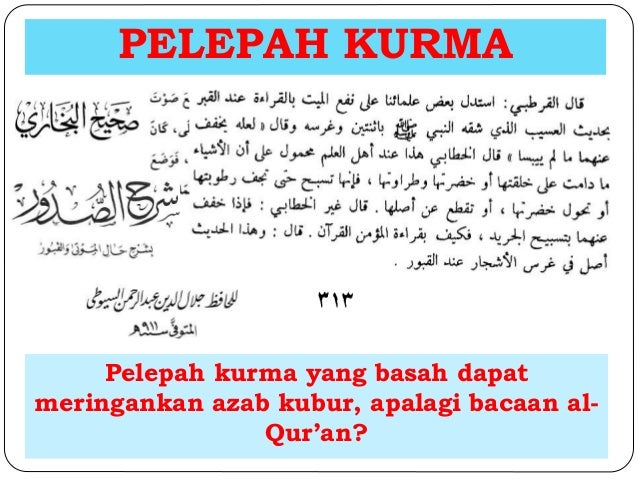 PELEPAH KURMA
قال القرطبي : استدل بعض علمائنا على نفع الميت بالقراءة عند القبر
بحديث العسيب الذي شقه النبي ﷺ باثنتين وغرسه وقال « لعله يخفف
عنهما ما لم ييبسا » قال الخطابي هذا عند أهل العلم محمول على أن الأشياء
ما دامت على خلقتها أو خضرتها وطراوتها ، فإنها تسبح حتى تجف رطوبتها
أو تحول خضرتها ، أو تقطع عن أصلها . قال غير الخطابي : فإذا خفف
عنهما بتسبيح الجريد ، فكيف بقراءة المؤمن القرآن . قال : وهذا الحديث
أصل في غرس الأشجار عند القبور .
صحيح البخاري
شرح الصدور
بشرح حال الموتى والقبور
للحافظ جلال الدين عبد الرحمن السيوطي
المتوفى سنة ٩١١هـ
٣١٣
Pelepah kurma yang basah dapat
meringankan azab kubur, apalagi bacaan al-
Qur’an?